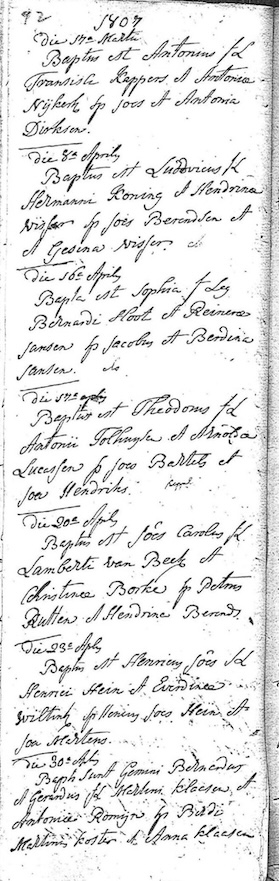 92
1807
die 17a Martii
Baptus est Antonius f L
Fransisci Kappers et Antoniæ
Nijkerk sp Joes et Antonia
Dirksen.
die 8a Aprilis
Baptus est Ludovicus f L
Hermanni Koning et Hendrinæ
Visser sp Joes Berendsen et
et Gesina Visser.
die 16a Aprilis
Bapta est Sophia f Leg
Bernardi Hoot et Reineræ
Jansen sp Jacobus et Berdina
Jansen.
die 17a aplis
Baptus est Theodorus f L
Antonii Tolhuysen et Arnoldæ
Lucassen sp Joes Bartels et
Joa Hendriks.
die 20a Aplis
Baptus est Joês Carolus f L
Lamberti van Beek et
Christinæ Borke sp Petrus
Rutten et Hendrina Berends.
die 23a Aplis
Baptus est Henricus Joês f L
Henrici Hein et Everdinæ
Wiltink sp Henricus Joes Hein et
Joa Martens.
die 30a Aplis
Bapti sunt Gemini Bernardus
et Gerardus f L Martini Klaassen et
Antoniæ Romijn sp Berdi
Martinus Koster et Anna Klaassen